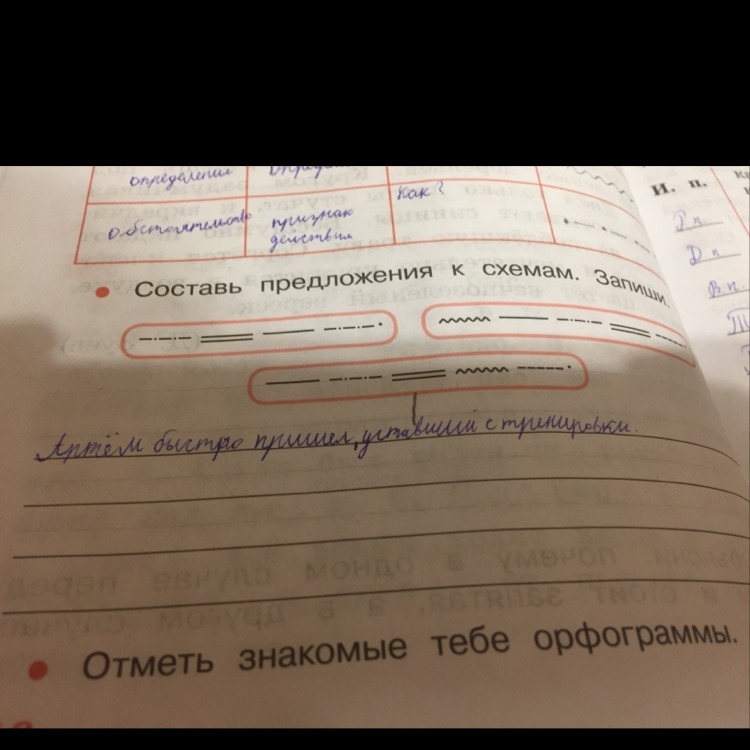 определение
Как?
И. п.
обстоятельство признак
действия
Р.п.
Д.п.
В.п.
• Составь предложения к схемам. Запиши.
Артём быстро пришел, уставший с тренировки.
• Отметь знакомые тебе орфограммы.